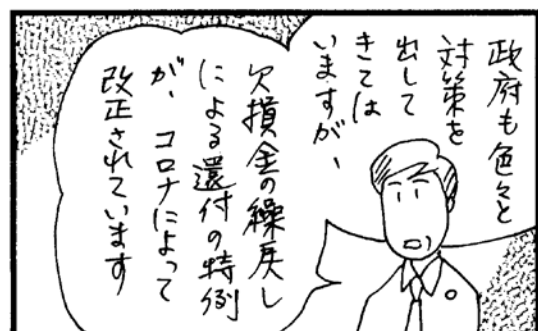 政府も色々と
対策を
出して
きては
いますが、
欠損金の繰戻し
による還付の特例
が、コロナによって
改正されています